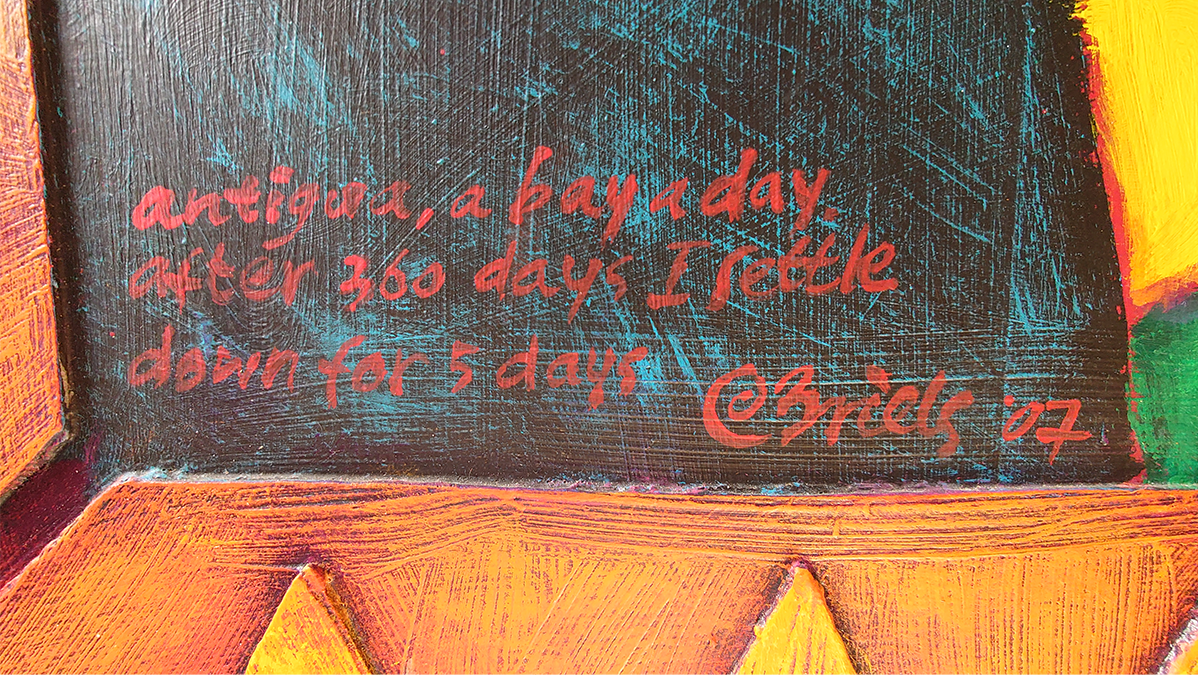 antigua, a bay a day.
after 360 days I settle
down for 5 days
©Briels '07